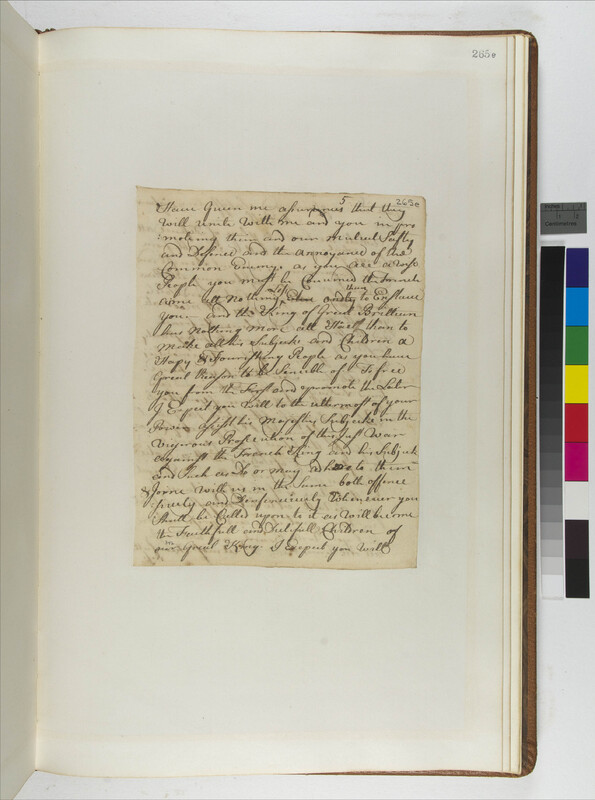 285e
5
269e
Have Given me assurances that they
will unite with me and you in pro
moting their and our mutual Safty
and Defence and the annoyance of the
Common Enemy as you are a wise
People you most be Convinced the french
aime att Nothing Else thing to Enslave
you and the King of Great Brittain
has Nothing More att Heart than to
make all his Subjects and Children a
Hapy & flourishing People as you have
Great Reason to be Sencible of To free
you from the first and promote the Later
I Expect you will to the uttermost of your
Power assist his Majestys Subjects in the
Vigorous Prosecution of this Just War
against the French King and his Subjects
and Such as do or may adhere to them
& Joyne with us in the Same both offence
sively and Defencesively Whenever you
Shall be Called upon to it as will become
the Faithfull and Dutifull Children of
our Great King I Expect you will